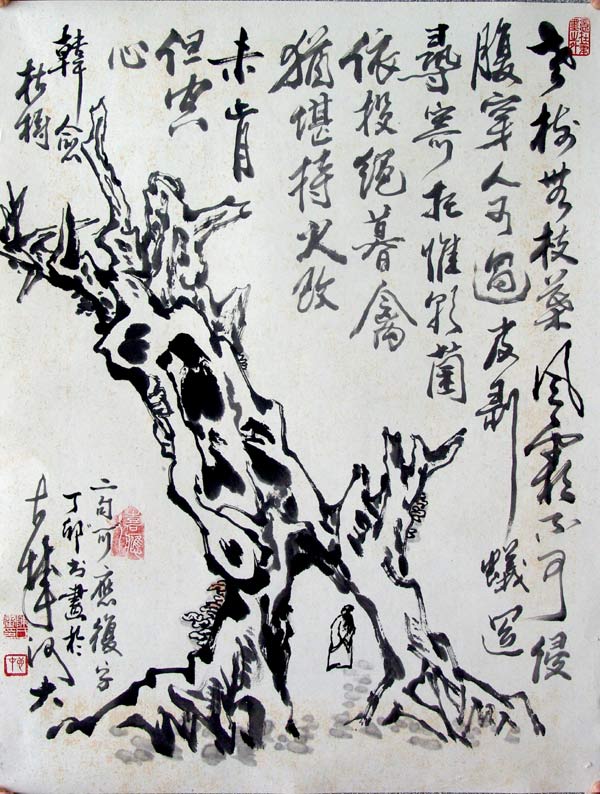 老樹無枝葉风霜不可侵
腹穿人可過皮剥蟻還
尋寄托惟朝菌
依投絕暮禽
猶堪持火改
未肯
但空
心
韓愈
枯樹
二句可應復字
丁卯书畫於
河大